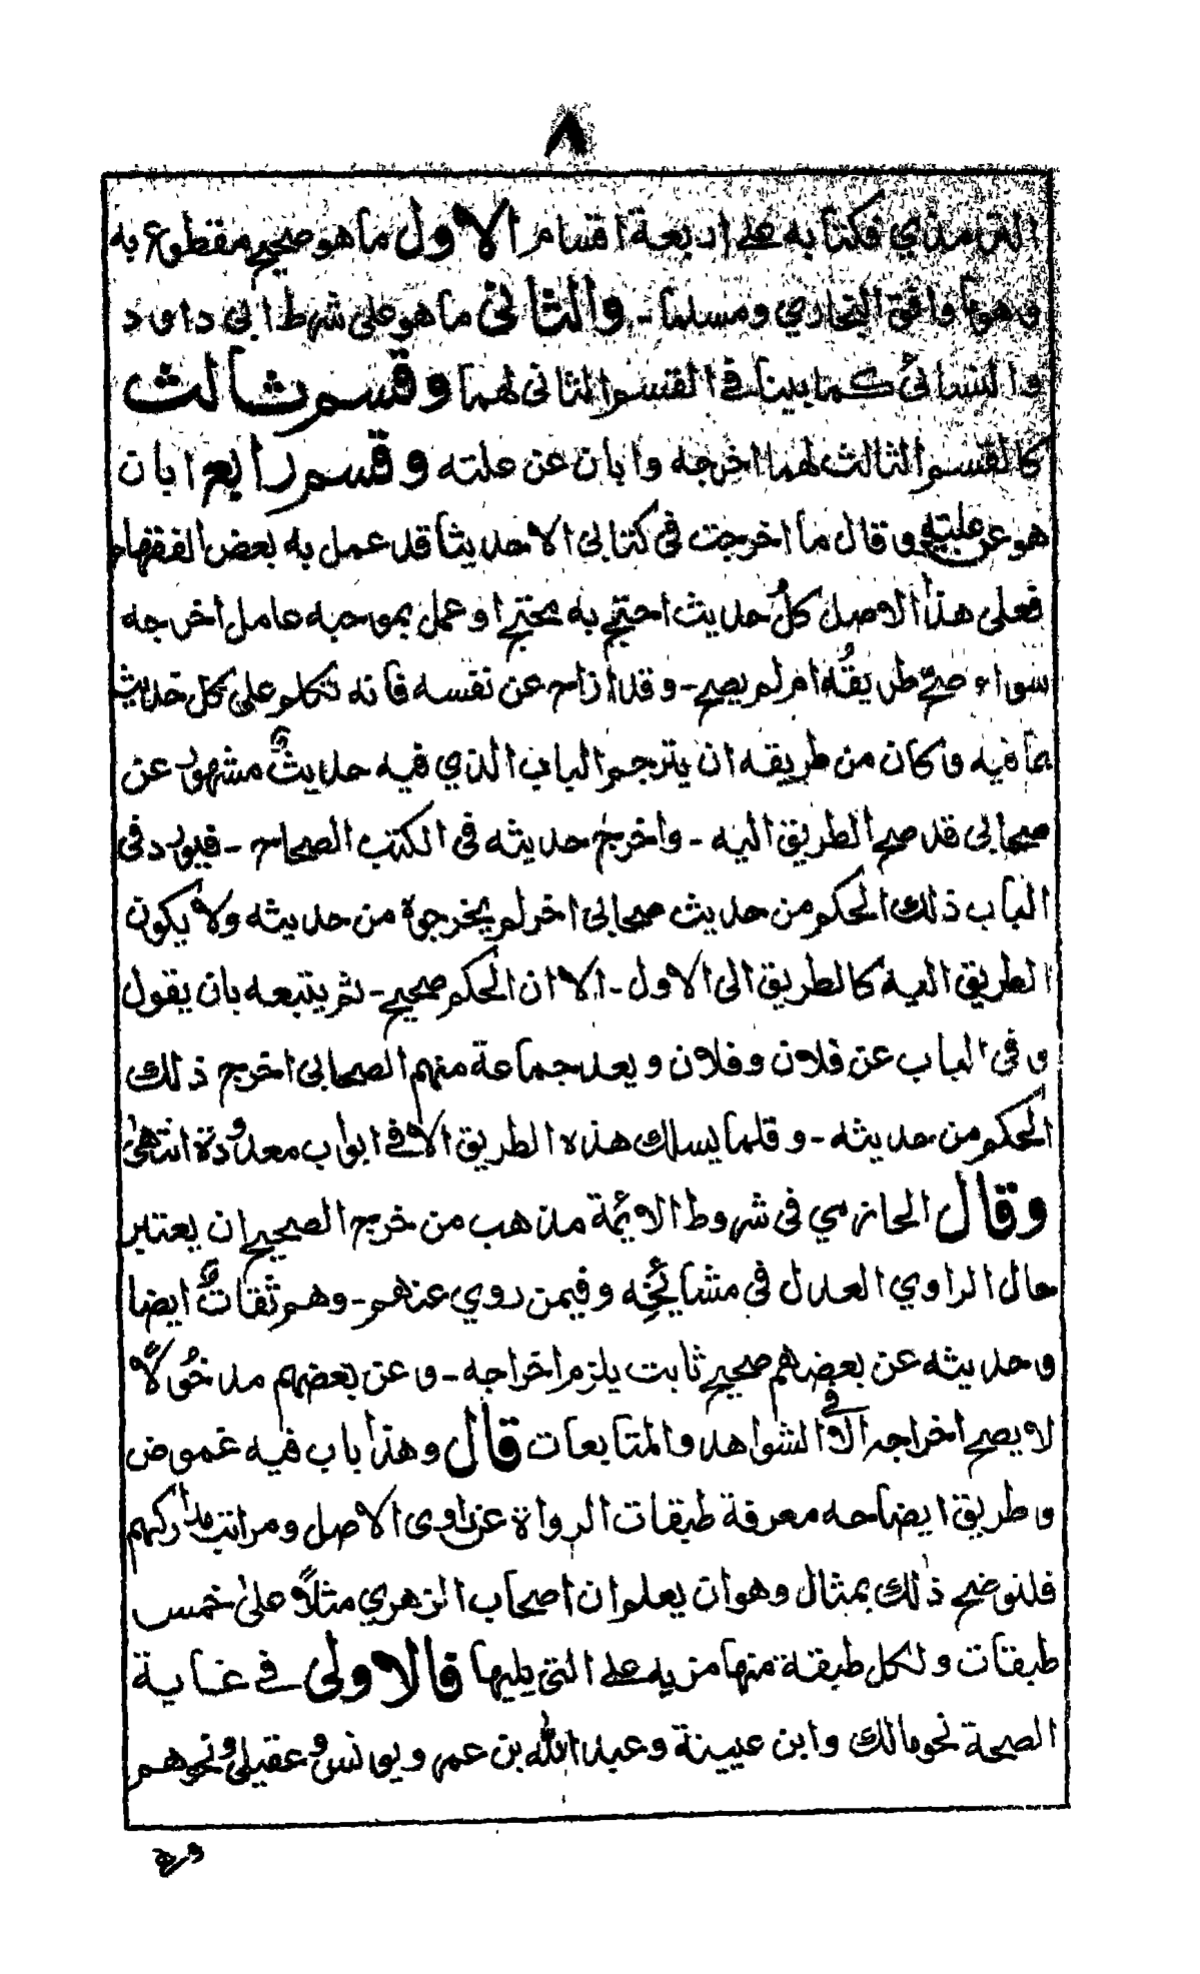 ٨
الترمذي فكتابه على اربعة اقسام الاول ما هو صحيح مقطوع به
وهو ما وافق البخاري ومسلما - والثانى ما هو على شرط ابى داود
والنسائى كما بينا فى القسم الثانى لهما وقسم ثالث
كالقسم الثالث لهما اخرجه وابان عن علته وقسم رابع ابان
هو عن علته وقال ما اخرجت فى كتابى الا حديثا قد عمل به بعض الفقهاء
فعلى هذا الاصل كل حديث احتج به محتج او عمل بموجبه عامل اخرجه
سواء صح طريقه ام لم يصح - وقد ازاح عن نفسه فانه تكلم على كل حديث
بما فيه وكان من طريقه ان يترجم الباب الذي فيه حديث مشهور عن
صحابى قد صح الطريق اليه - واخرج حديثه فى الكتب الصحاح - فيورد فى
الباب ذلك الحكم من حديث صحابى اخر لم يخرجوه من حديثه ولا يكون
الطريق اليه كالطريق الى الاول - الا ان الحكم صحيح - ثم يتبعه بان يقول
وفى الباب عن فلان وفلان ويعد جماعة منهم الصحابى اخرج ذلك
الحكم من حديثه - وقلما يسلك هذه الطريق الا فى ابواب معدودة انتهى
وقال الحازمي فى شروط الائمة مذهب من خرج الصحيح ان يعتبر
حال الراوي العدل فى مشائخه وفيمن روي عنهم - وهم ثقات ايضا
وحديثه عن بعضهم صحيح ثابت يلزم اخراجه - وعن بعضهم مدخولا
لا يصح اخراجه الا فى الشواهد والمتابعات قال وهذا باب فيه غموض
وطريق ايضاحه معرفة طبقات الرواة عن راوى الاصل ومراتب مداركهم
فلنوضح ذلك بمثال وهو ان يعلم ان اصحاب الزهري مثلاً على خمس
طبقات ولكل طبقة منها مزية على التى يليها فالاولى فى غاية
الصحة نحو مالك وابن عيينة وعبد الله بن عمر ويونس وعقيل ونحوهم